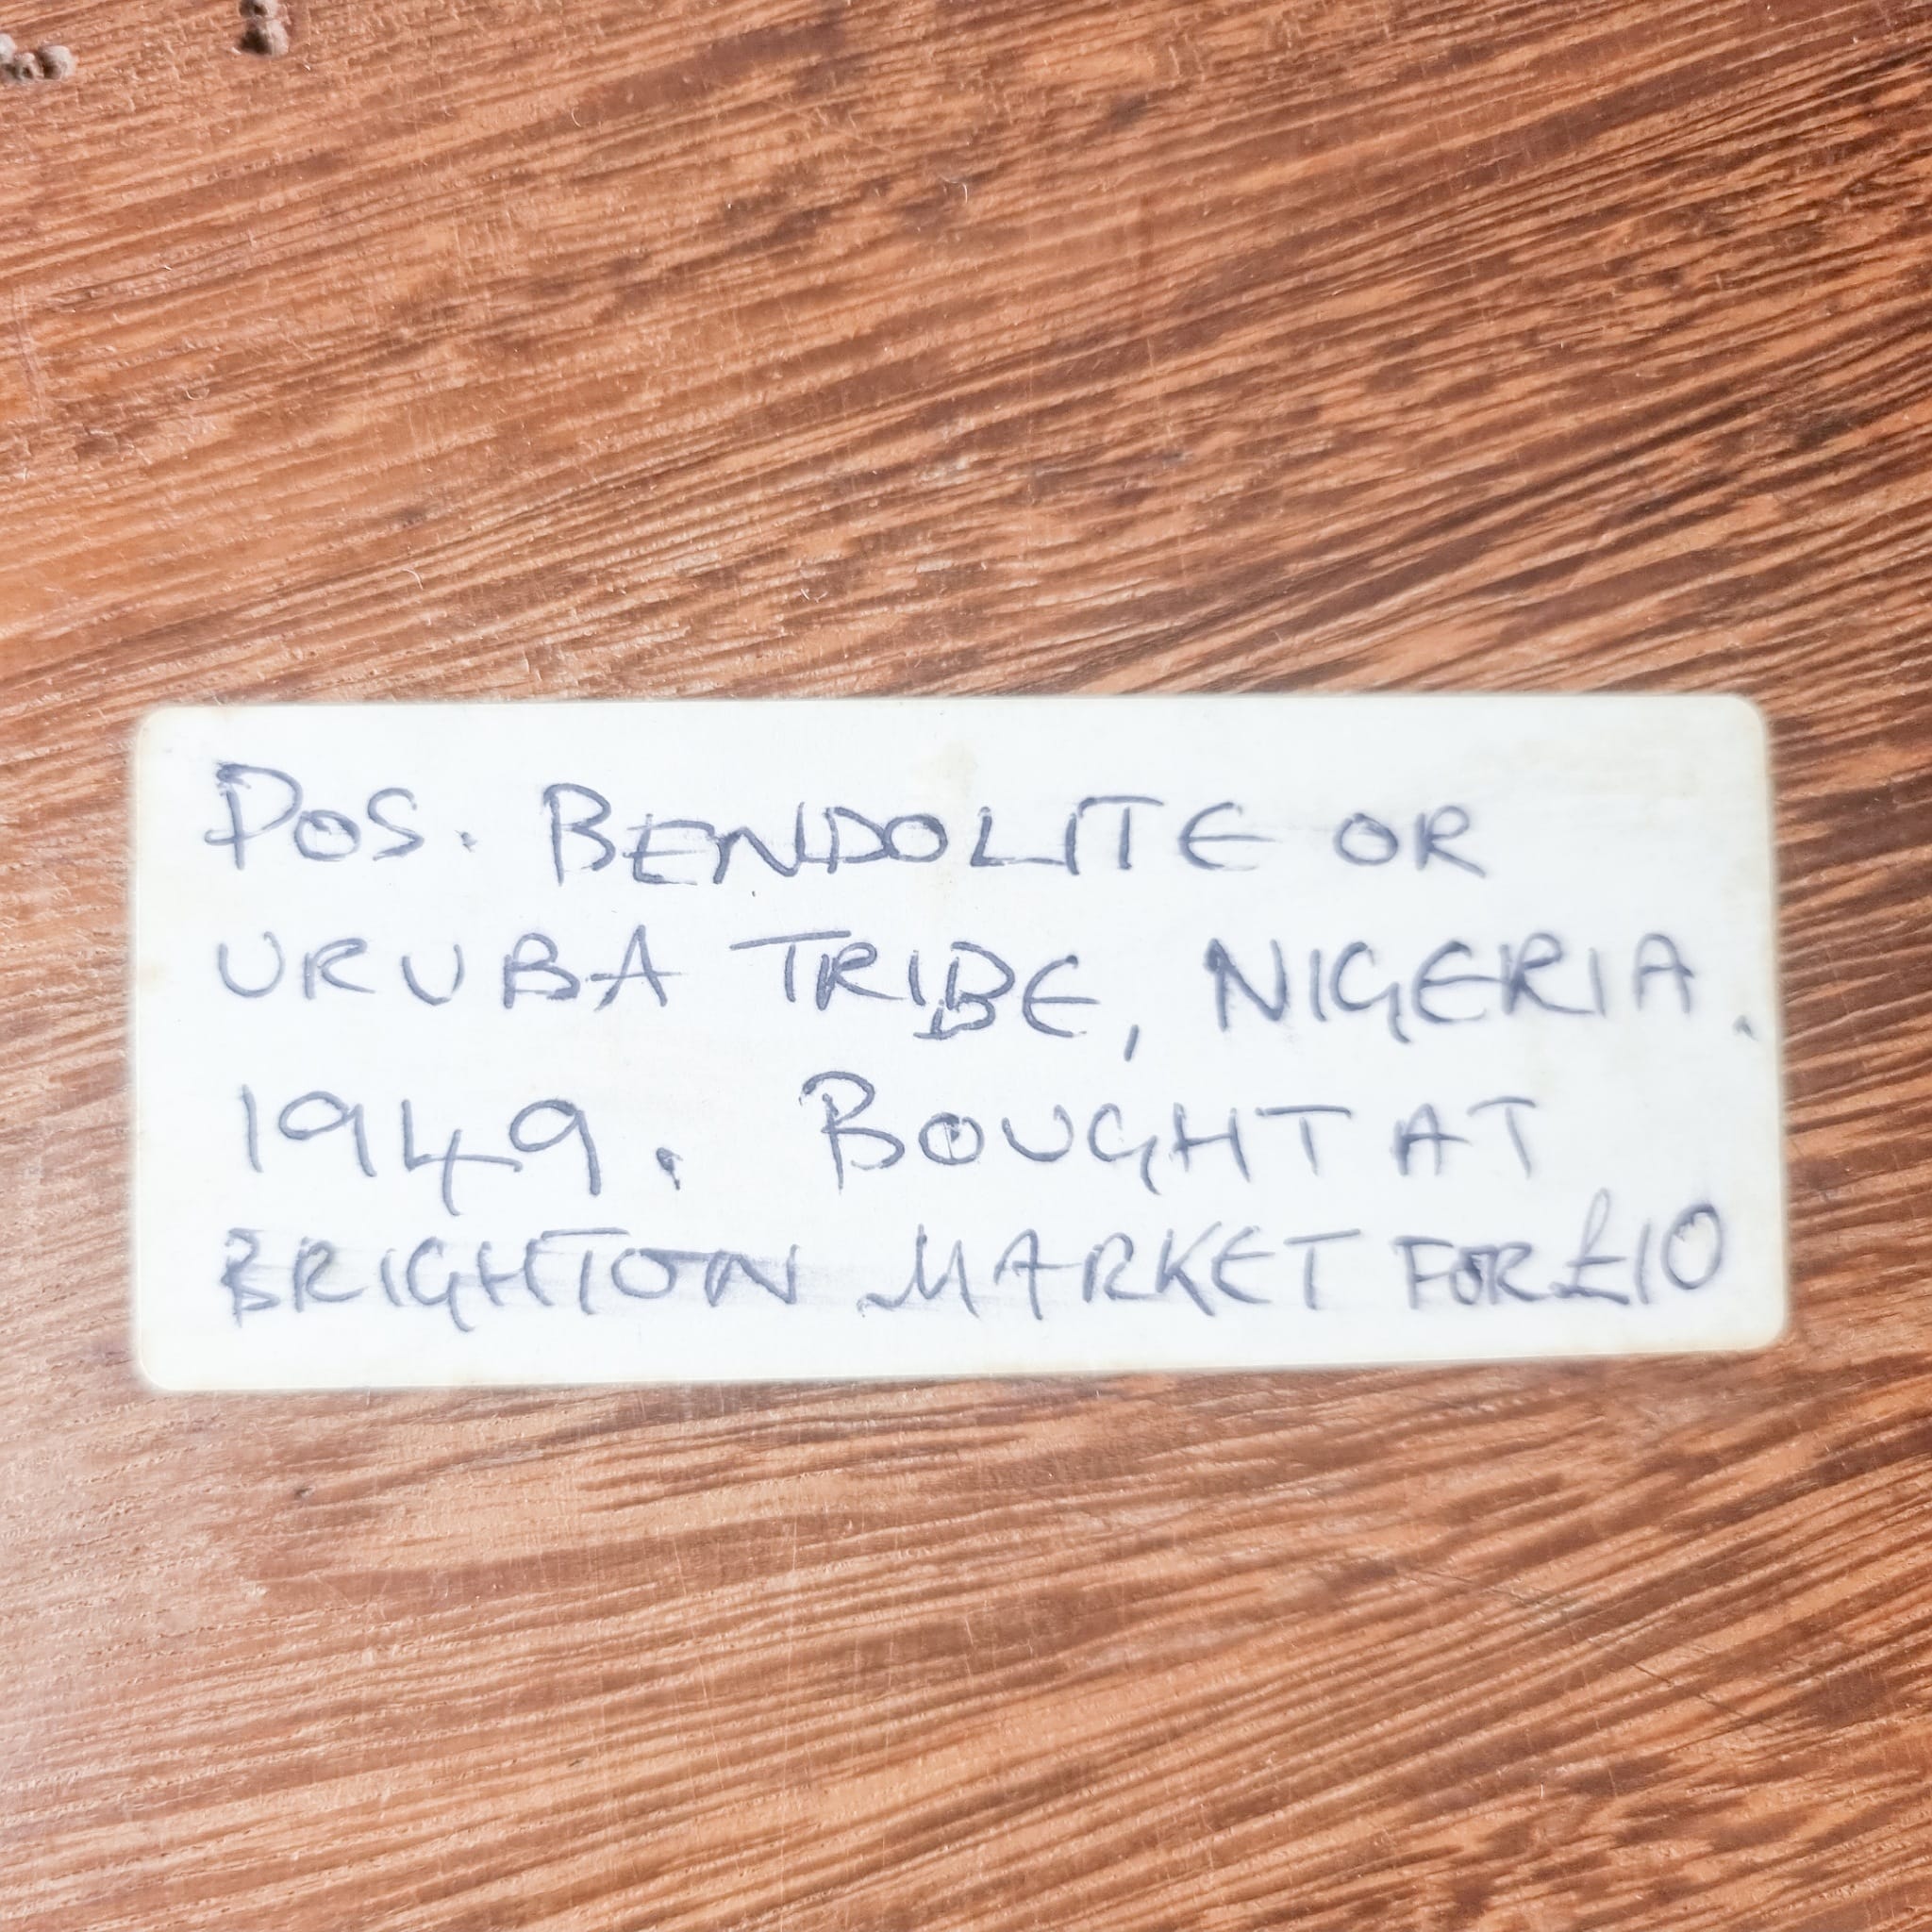 POS. BENDOLITE OR
URUBA TRIBE, NIGERIA.
1949. BOUGHT AT
BRIGHTON MARKET FOR £10